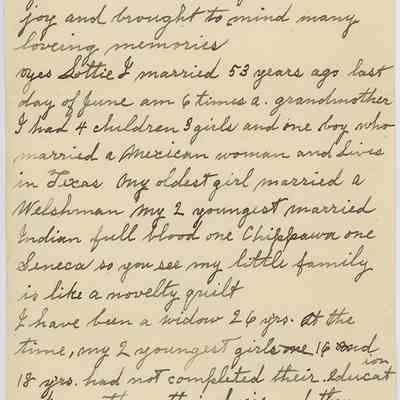 joy and brought to mind many
loveing memories
oyes Lottie I married 53 years ago last
day of June am 6 times a. grandmother
I had 4 children 3 girls and one boy who
married a Mexican woman and lives
in Texas my oldest girl married a
Welshman my 2 youngest married
Indian full blood one Chippawa one
Seneca so you see my little family
is like a novelty quilt
I have been a widow 26 yrs. At the
time, my 2 youngest girls one 16 and
18 yrs. had not completed their educat
ion